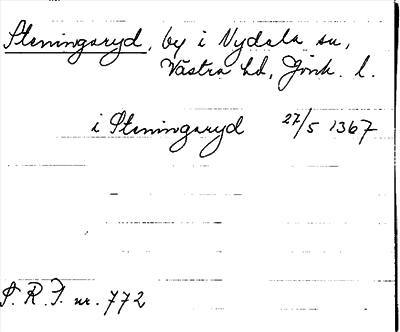 Steningsryd, by i Nydala sn,
Västra hd, Jönk. l.
i Steningsryd 27/5 1367
S. R. P. nr. 772